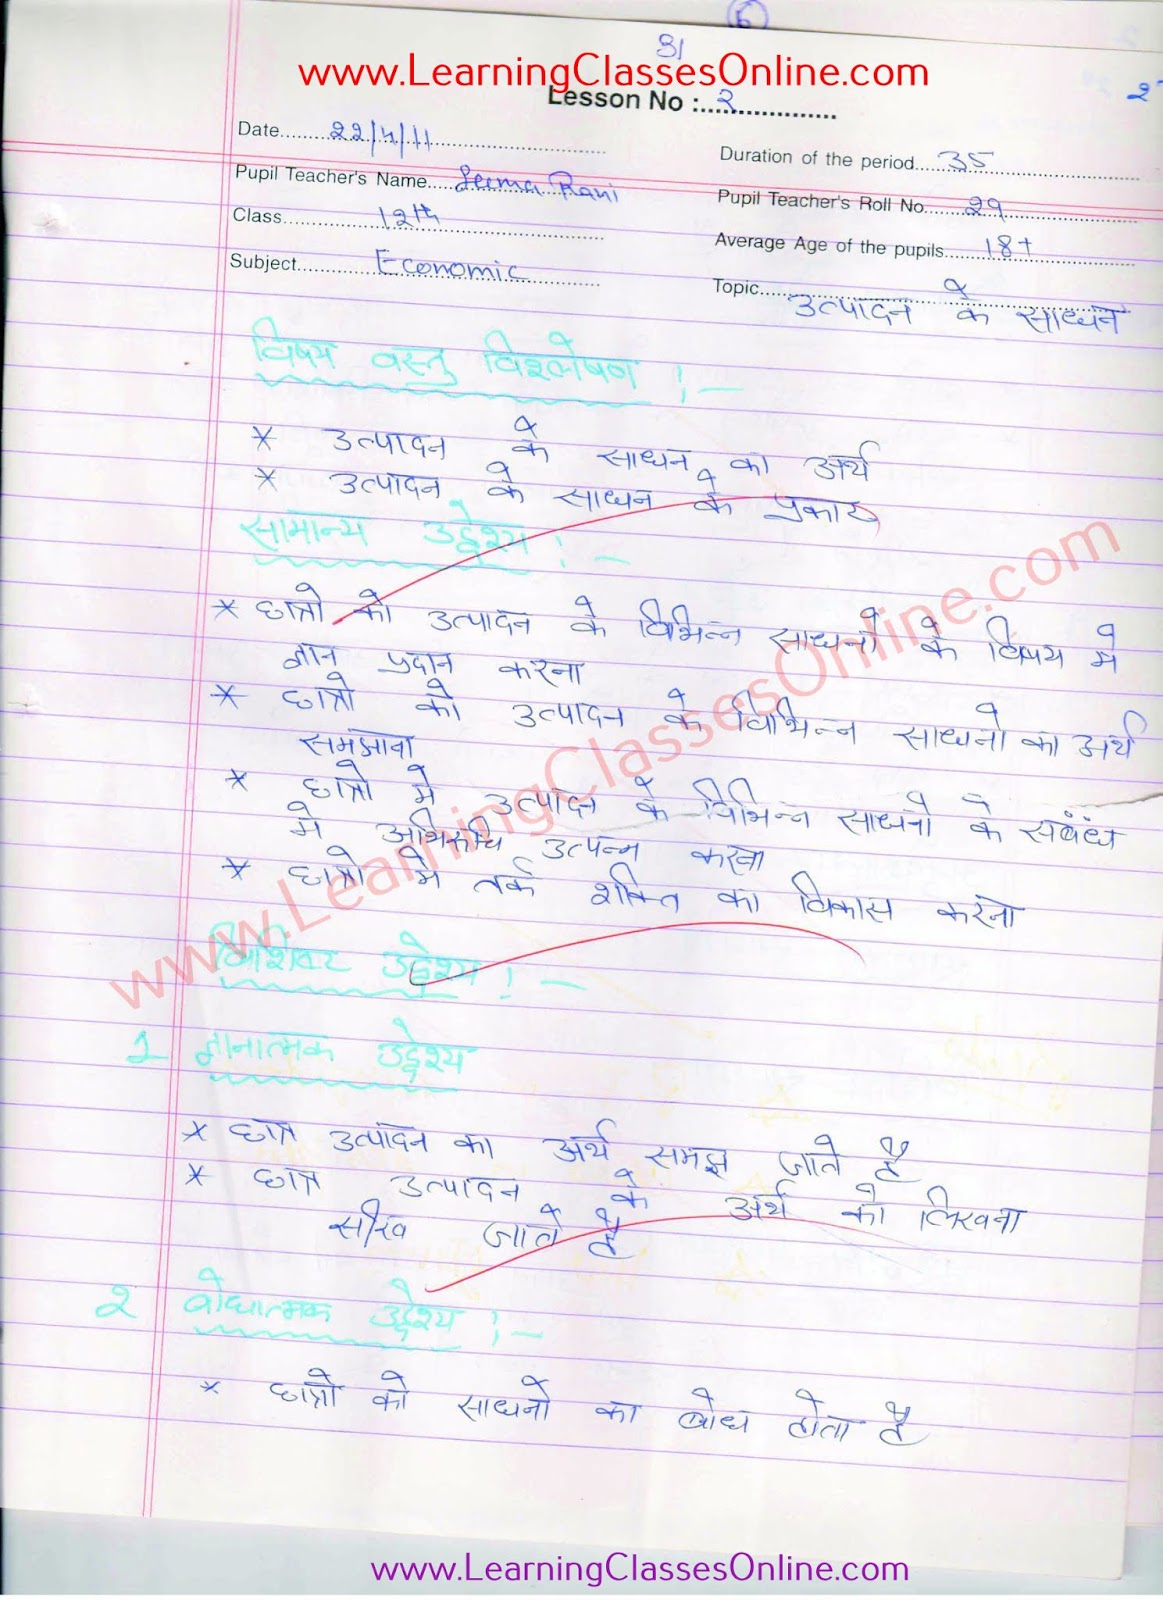 6
31
www.LearningClassesOnline.com
Lesson No :...२................
Date.........22/4/11
Duration of the period....35
Pupil Teacher's Name.....Seema Rani
Pupil Teacher's Roll No......29
Class...............12th
Average Age of the pupils......18+
Subject............Economic
Topic....उत्पादन के साधन
विषय वस्तु विश्लेषण :-
* उत्पादन के साधन का अर्थ
* उत्पादन के साधन के प्रकार
सामान्य उद्देश्य :-
* छात्रो को उत्पादन के विभिन्न साधनो के विषय मे
ज्ञान प्रदान करना
* छात्रो को उत्पादन के विभिन्न साधनो का अर्थ
समझाना
* छात्रो मे उत्पादन के विभिन्न साधनो के संबंध
मे अभिरुचि उत्पन्न करना
* छात्रो मे तर्क शक्ति का विकास करना
www.LearningClassesOnline.com
विशिष्ट उद्देश्य :-
1 ज्ञानात्मक उद्देश्य
* छात्र उत्पादन का अर्थ समझ जाते है
* छात्र उत्पादन के अर्थ को लिखना
सीख जाते है
2 बोधात्मक उद्देश्य :-
* छात्रो को साधनो का बोध होता है
www.LearningClassesOnline.com